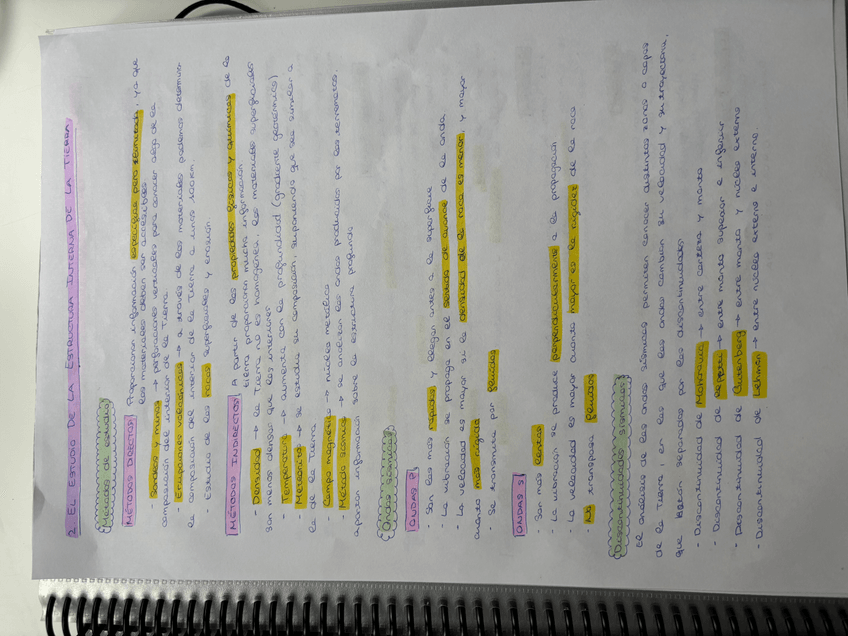 2. EL ESTUDIO DE LA ESTRUCTURA INTERNA DE LA TIERRA
Métodos de estudio
MÉTODOS DIRECTOS Proporcionan información específica pero limitada, ya que
los materiales deben ser accesibles
- Sondeos y minas → perforaciones verticales para conocer algo de la
composición del interior de la Tierra
- Erupciones volcánicas → a través de los materiales podemos determinar
la composición del interior de la Tierra a unos 100Km.
- Estudio de las rocas superficiales y erosión.
MÉTODOS INDIRECTOS A partir de las propiedades físicas y químicas de la
tierra proporcionan mucha información
- Densidad → la Tierra no es homogénea, los materiales superficiales
son menos densos que los interiores
- Temperatura → aumenta con la profundidad (gradiente geotérmico)
- Meteorito → se estudia su composición, suponiendo que sea similar a
la de la Tierra
- Campo magnético → núcleo metálico
- Método sísmico → se analizan las ondas producidas por los terremotos,
aportan información sobre la estructura profunda
Ondas sísmicas
ONDAS P
- Son las más rápidas y llegan antes a la superficie
- La vibración se propaga en el sentido de avance de la onda
- La velocidad es mayor si la densidad de la roca es menor, y mayor
cuanto más rígida
- Se transmite por fluidos
ONDAS S
- Son más lentas
- La vibración se produce perpendicularmente a la propagación
- La velocidad es mayor cuanto mayor es la rigidez de la roca
- No transpasa fluidos
Discontinuidades sísmicas
El análisis de las ondas sísmicas permiten conocer distintas zonas o capas
de la Tierra, en las que las ondas cambian su velocidad y su trayectoria,
que están separadas por las discontinuidades:
- Discontinuidad de Mohorovicic → entre corteza y manto
- Discontinuidad de Repetti → entre manto superior e inferior
- Discontinuidad de Gutenberg → entre manto y núcleo externo
- Discontinuidad de Lehman → entre núcleo externo e interno.